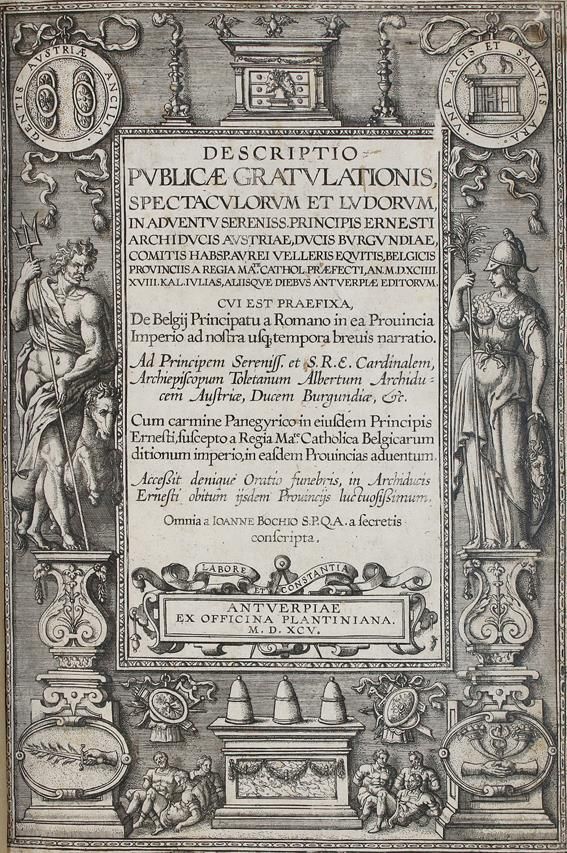 GENTIS AVSTRIÆ ANCILIA
VNA PACIS ET SALVTIS ARA
DESCRIPTIO
PVBLICÆ GRATVLATIONIS,
SPECTACVLORVM ET LVDORVM,
IN ADVENTV SERENISS. PRINCIPIS ERNESTI
ARCHIDVCIS AVSTRIAE, DVCIS BVRGVNDIAE,
COMITIS HABSP. AVREI VELLERIS EQVITIS, BELGICIS
PROVINCIIS A REGIA MA.te CATHOL. PRÆFECTI, AN. M.D.XCIIII.
XVIII. KAL. IVLIAS, ALIISQVE DIEBVS ANTVERPIÆ EDITORVM.
CVI EST PRAEFIXA,
De Belgij Principatu a Romano in ea Prouincia
Imperio ad nostra usq; tempora breuis narratio.
Ad Principem Sereniss. et S. R. E. Cardinalem,
Archiepiscopum Toletanum Albertum Archidu-
cem Austriæ, Ducem Burgundiæ, &c.
Cum carmine Panegyrico in eiusdem Principis
Ernesti, suscepto a Regia Ma.te Catholica Belgicarum
ditionum imperio, in easdem Prouincias aduentum.
Accessit denique Oratio funebris, in Archiducis
Ernesti obitum ijsdem Prouincijs luctuosissimum.
Omnia a IOANNE BOCHIO S.P.Q.A. a secretis
conscripta.
LABORE ET CONSTANTIA
ANTVERPIAE
EX OFFICINA PLANTINIANA.
M. D. XCV.